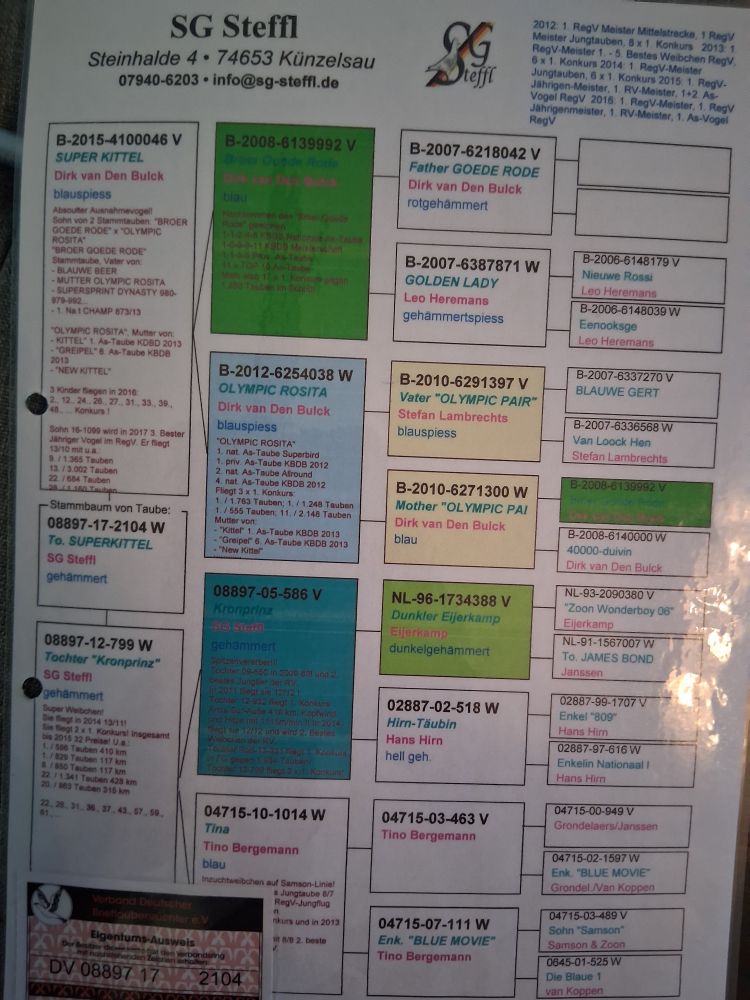 SG Steffl
Steinhalde 4 • 74653 Künzelsau
07940-6203 • info@sg-steffl.de
SG
Steffl
2012: 1. RegV Meister Mittelstrecke, 1 RegV
Meister Jungtauben, 8 x 1. Konkurs 2013: 1.
RegV-Meister 1. - 5. Bestes Weibchen RegV,
6 x 1. Konkurs 2014: 1. RegV-Meister
Jungtauben, 6 x 1. Konkurs 2015: 1. RegV-
Jährigen-Meister, 1. RV-Meister, 1+2. As-
Vogel RegV 2016: 1. RegV-Meister, 1. RegV
Jährigenmeister, 1. RV-Meister, 1. As-Vogel
RegV
B-2015-4100046 V
SUPER KITTEL
Dirk van Den Bulck
blauspiess
Absoulter Ausnahmevogel!
Sohn von 2 Stammtauben: "BROER
GOEDE RODE" x "OLYMPIC
ROSITA"
"BROER GOEDE RODE"
Stammtaube, Vater von:
- BLAUWE BEER
- MUTTER OLYMPIC ROSITA
- SUPERSPRINT DYNASTY 980-
979-992...
- 1. Na.t CHAMP 673/13
"OLYMPIC ROSITA", Mutter von:
- KITTEL" 1. As-Taube KDBD 2013
- "GREIPEL" 6. As-Taube KBDB
2013
- "NEW KITTEL"
3 Kinder fliegen in 2016:
2., 12., 24., 26., 27., 31., 33., 39.,
48., ... Konkurs !
Sohn 16-1099 wird in 2017 3. Bester
Jähriger Vogel im RegV. Er fliegt
13/10 mit u.a.:
9. / 1.365 Tauben
13. / 3.002 Tauben
22. / 684 Tauben
Stammbaum von Taube:
08897-17-2104 W
To. SUPERKITTEL
SG Steffl
gehämmert
08897-12-799 W
Tochter "Kronprinz"
SG Steffl
gehämmert
Super Weibchen!
Sie fliegt in 2014 13/11!
Sie fliegt 2 x 1. Konkurs! Insgesamt
bis 2015 32 Preise! U.a.:
1. / 586 Tauben 410 km
1. / 829 Tauben 117 km
8. / 850 Tauben 117 km
22. / 1.341 Tauben 428 km
20. / 863 Tauben 315 km
22., 28., 31., 36., 37., 43., 57., 59.,
61., ...
B-2008-6139992 V
Broer Goede Rode
Dirk van Den Bulck
blau
B-2012-6254038 W
OLYMPIC ROSITA
Dirk van Den Bulck
blauspiess
"OLYMPIC ROSITA"
1. nat. As-Taube Superbird
1. priv. As-Taube KBDB 2012
2. nat. As-Taube Allround
4. nat. As-Taube KBDB 2012
Fliegt 3 x 1. Konkurs:
1. / 1.763 Tauben; 1. / 1.248 Tauben
1. / 555 Tauben; 11. / 2.148 Tauben
Mutter von:
- "Kittel" 1. As-Taube KBDB 2013
- "Greipel" 6. As-Taube KBDB 2013
- "New Kittel"
08897-05-586 V
Kronprinz
SG Steffl
gehämmert
04715-10-1014 W
Tina
Tino Bergemann
blau
Inzuchtweibchen auf Samson-Linie!
s Jungtaube 6/7
RegV-Jungflug
n
nkurs und in 2013
nit 8/8 2. beste
B-2007-6218042 V
Father GOEDE RODE
Dirk van Den Bulck
rotgehämmert
B-2007-6387871 W
GOLDEN LADY
Leo Heremans
gehämmertspiess
B-2010-6291397 V
Vater "OLYMPIC PAIR"
Stefan Lambrechts
blauspiess
B-2010-6271300 W
Mother "OLYMPIC PAI
Dirk van Den Bulck
blau
NL-96-1734388 V
Dunkler Eijerkamp
Eijerkamp
dunkelgehämmert
02887-02-518 W
Hirn-Täubin
Hans Hirn
hell geh.
04715-03-463 V
Tino Bergemann
04715-07-111 W
Enk. "BLUE MOVIE"
Tino Bergemann
B-2006-6148179 V
Nieuwe Rossi
Leo Heremans
B-2006-6148039 W
Eenooksge
Leo Heremans
B-2007-6337270 V
BLAUWE GERT
B-2007-6336568 W
Van Loock Hen
Stefan Lambrechts
B-2008-6139992 V
B-2008-6140000 W
40000-duivin
Dirk van Den Bulck
NL-93-2090380 V
"Zoon Wonderboy 06"
Eijerkamp
NL-91-1567007 W
To. JAMES BOND
Janssen
02887-99-1707 V
Enkel "809"
Hans Hirn
02887-97-616 W
Enkelin Nationaal I
Hans Hirn
04715-00-949 V
Grondelaers/Janssen
04715-02-1597 W
Enk. "BLUE MOVIE"
Grondel./Van Koppen
04715-03-489 V
Sohn "Samson"
Samson & Zoon
0645-01-525 W
Die Blaue 1
van Koppen
Verband Deutscher
Brieftaubenzüchter e.V.
Eigentums-Ausweis
DV 08897 17 2104